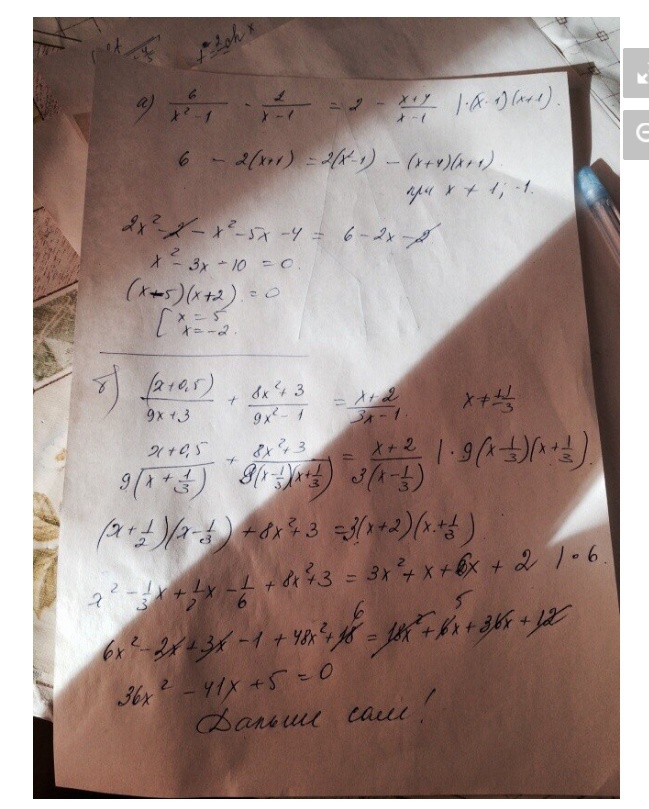 а) 6/(x²-1) - 2/(x-1) = 2 - (x+4)/(x-1) | ·(x-1)(x+1).
6 - 2(x+1) = 2(x²-1) - (x+4)(x+1)
при x ≠ 1; -1.
2x² - 2 - x² - 5x - 4 = 6 - 2x - 2
x² - 3x - 10 = 0.
(x-5)(x+2) = 0
[ x = 5
x = -2.
б) (x+0,5)/(9x+3) + (8x²+3)/(9x²-1) = (x+2)/(3x-1) x ≠ ±1/3
(x+0,5)/(9(x+1/3)) + (8x²+3)/(9(x-1/3)(x+1/3)) = (x+2)/(3(x-1/3)) | ·9(x-1/3)(x+1/3).
(x+1/2)(x-1/3) + 8x²+3 = 3(x+2)(x+1/3)
x² - 1/3x + 1/2x - 1/6 + 8x²+3 = 3x² + x + 6x + 2 | ·6.
6x² - 2x + 3x - 1 + 48x² + 18 = 18x² + 6x + 36x + 12
36x² - 41x + 5 = 0
Дальше сам!